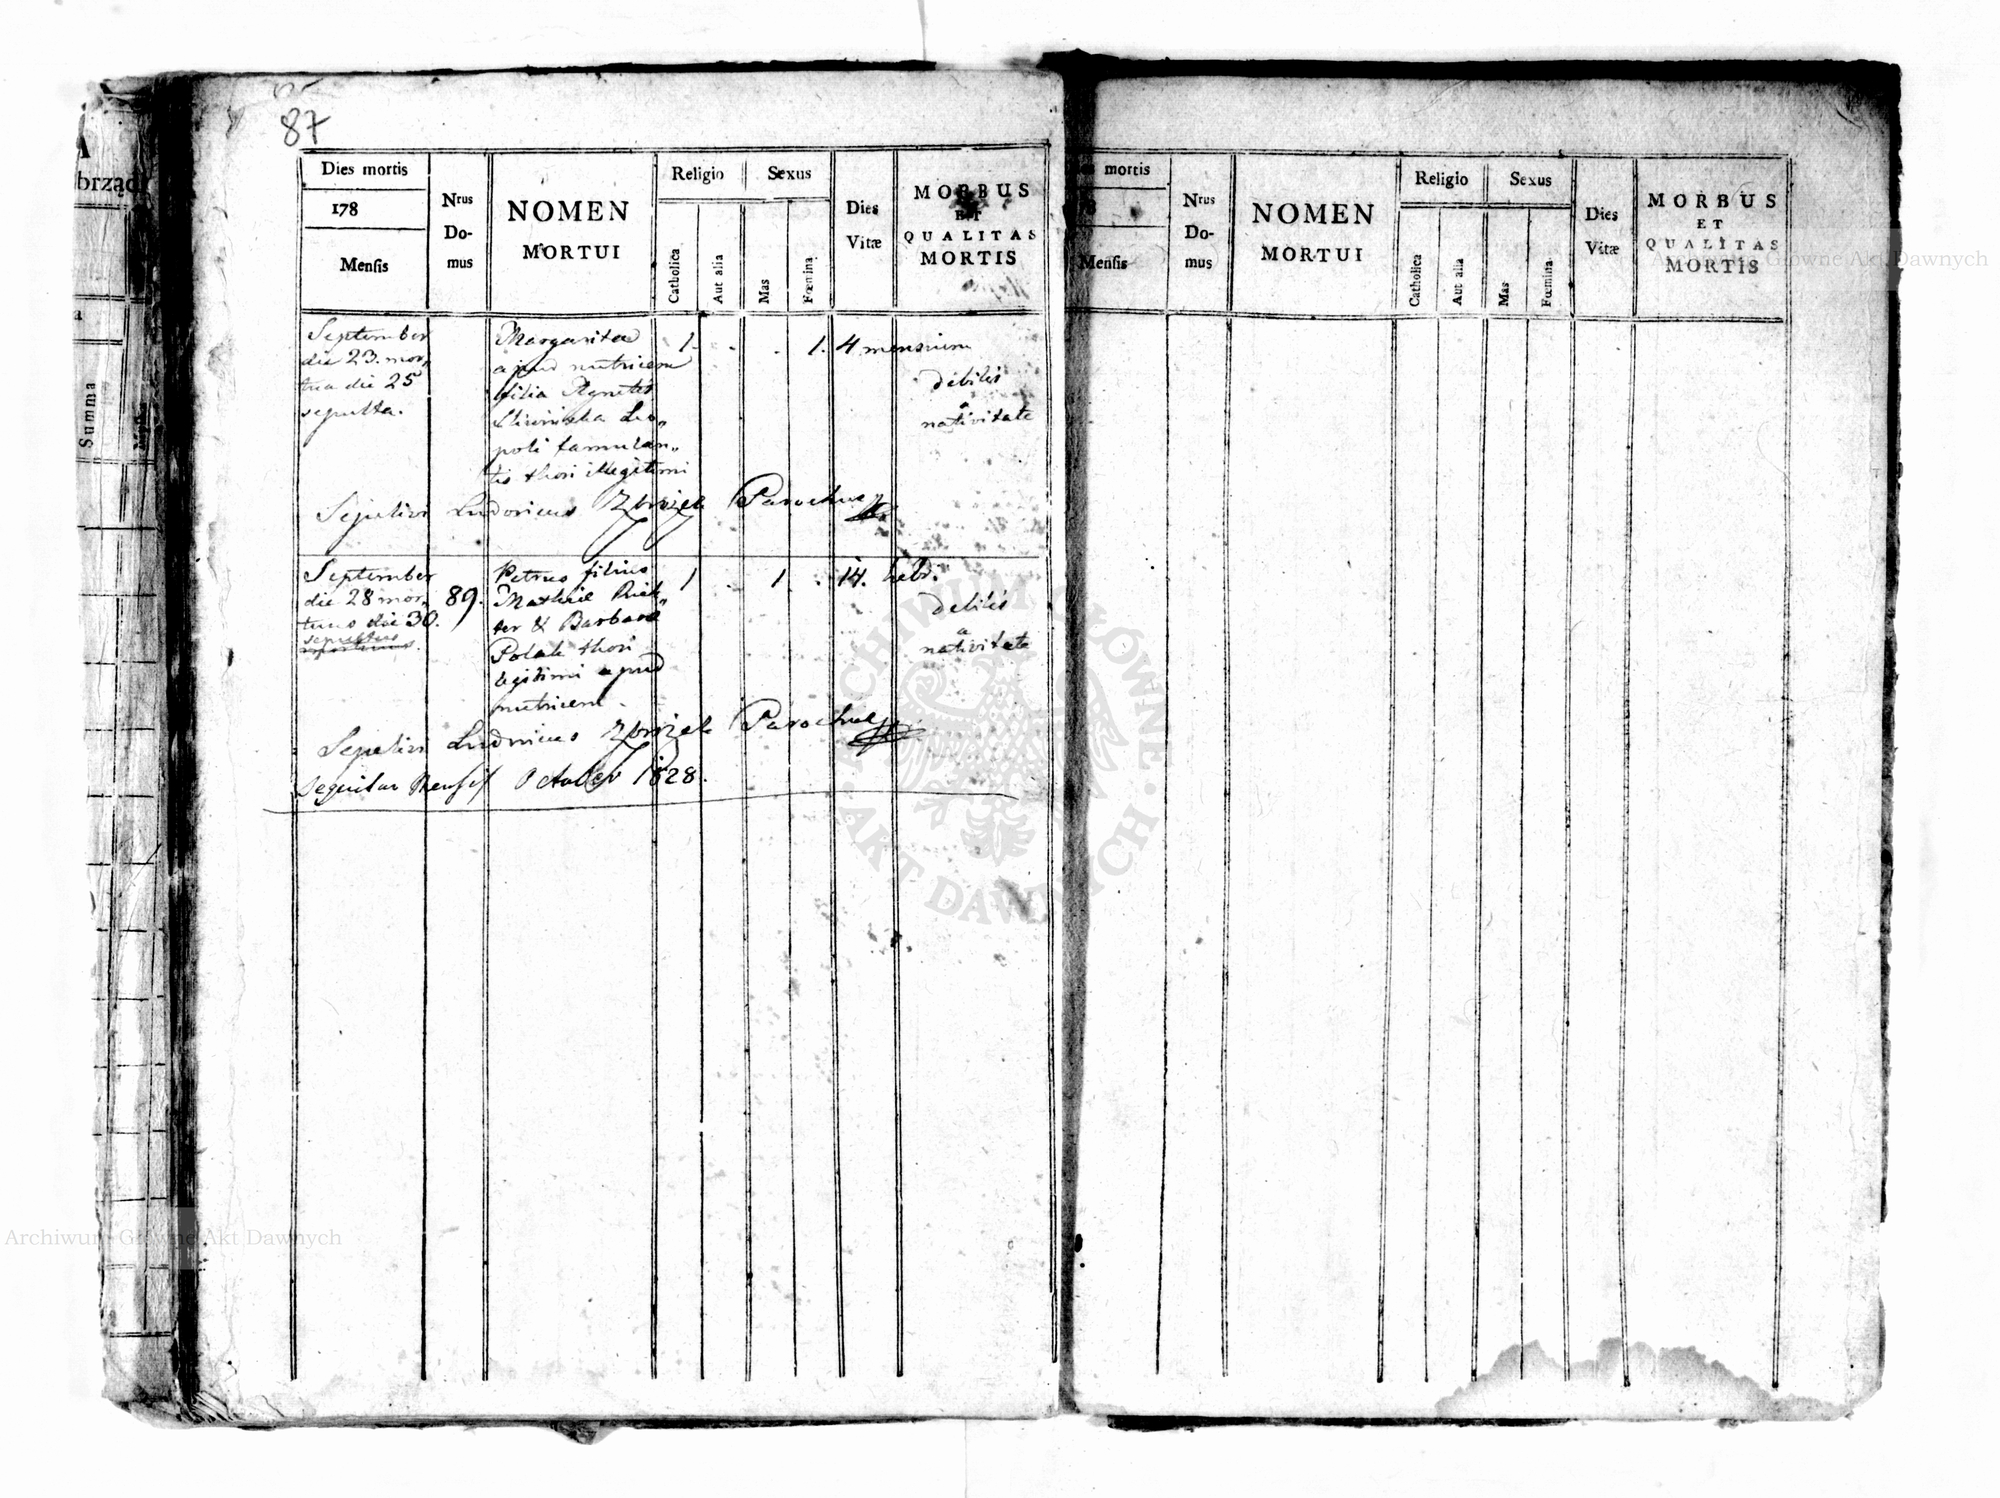 87
Dies mortis
178
Mensis
Nrus
Do-
mus
NOMEN
MORTUI
Religio
Catholica
Aut alia
Sexus
Mas
Fœmina
Dies
Vitæ
MORBUS
ET
QUALITAS
MORTIS
September
die 23. mor„
tua die 25
sepulta.
Margarita
apud nutricem
filia Agnetis
Leo„
poli famulan„
tis thori illegitimi
1.
1.
4 mensium
debilis
a
nativitate
Sepelivi Ludovicus Parochus
September
die 28 mor„
tuus die 30.
sepultus
89.
Petrus filius
Mathiæ
ter & Barbaræ
Polak thori
legitimi apud
nutricem.
1
1
14. hebd.
debilis
a
nativitate
Sepelivi Ludovicus Parochus
Sequitur Mensis October 1828.
mortis
8
Mensis
Nrus
Do-
mus
NOMEN
MORTUI
Religio
Catholica
Aut alia
Sexus
Mas
Fœmina
Dies
Vitæ
MORBUS
ET
QUALITAS
MORTIS
brząd
Summa
ARCHIWUM GŁÓWNE
AKT DAWNYCH
Archiwum Główne Akt Dawnych
Archiwum Główne Akt Dawnych